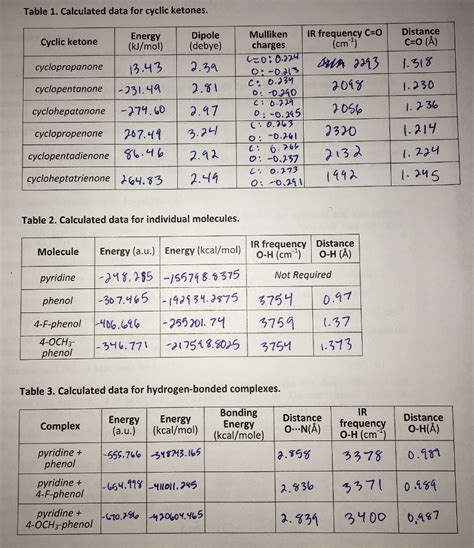 Table 1. Calculated data for cyclic ketones.
Cyclic ketone | Energy (kJ/mol) | Dipole (debye) | Mulliken charges | IR frequency C=O (cm⁻¹) | Distance C=O (Å)
cyclopropanone | 13.43 | 2.39 | C=O: 0.224 O: -0.213 | 2293 | 1.318
cyclopentanone | -231.49 | 2.81 | C: 0.234 O: -0.240 | 2098 | 1.230
cycloheptanone | -274.60 | 2.97 | C: 0.229 O: -0.245 | 2056 | 1.236
cyclopropenone | 207.49 | 3.24 | C: 0.263 O: -0.261 | 2320 | 1.214
cyclopentadienone | 86.46 | 2.92 | C: 0.266 O: -0.237 | 2132 | 1.224
cycloheptatrienone | 264.83 | 2.49 | C: 0.273 O: -0.291 | 1992 | 1.245
Table 2. Calculated data for individual molecules.
Molecule | Energy (a.u.) | Energy (kcal/mol) | IR frequency O-H (cm⁻¹) | Distance O-H (Å)
pyridine | -248.285 | -155798.8375 | Not Required
phenol | -307.465 | -192934.2875 | 3754 | 0.97
4-F-phenol | -406.696 | -255201.74 | 3759 | 1.37
4-OCH₃-phenol | -346.771 | -217598.8025 | 3754 | 1.373
Table 3. Calculated data for hydrogen-bonded complexes.
Complex | Energy (a.u.) | Energy (kcal/mol) | Bonding Energy (kcal/mole) | Distance O···N(Å) | IR frequency O-H (cm⁻¹) | Distance O-H(Å)
pyridine + phenol | -555.766 | -348743.165 | 2.858 | 3378 | 0.989
pyridine + 4-F-phenol | -654.998 | -411011.245 | 2.836 | 3371 | 0.989
pyridine + 4-OCH₃-phenol | -670.286 | -420604.465 | 2.839 | 3400 | 0.987